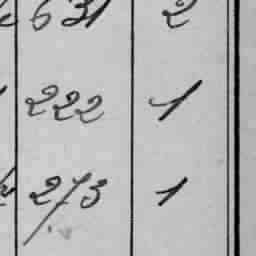 631 2
222 1
273 1